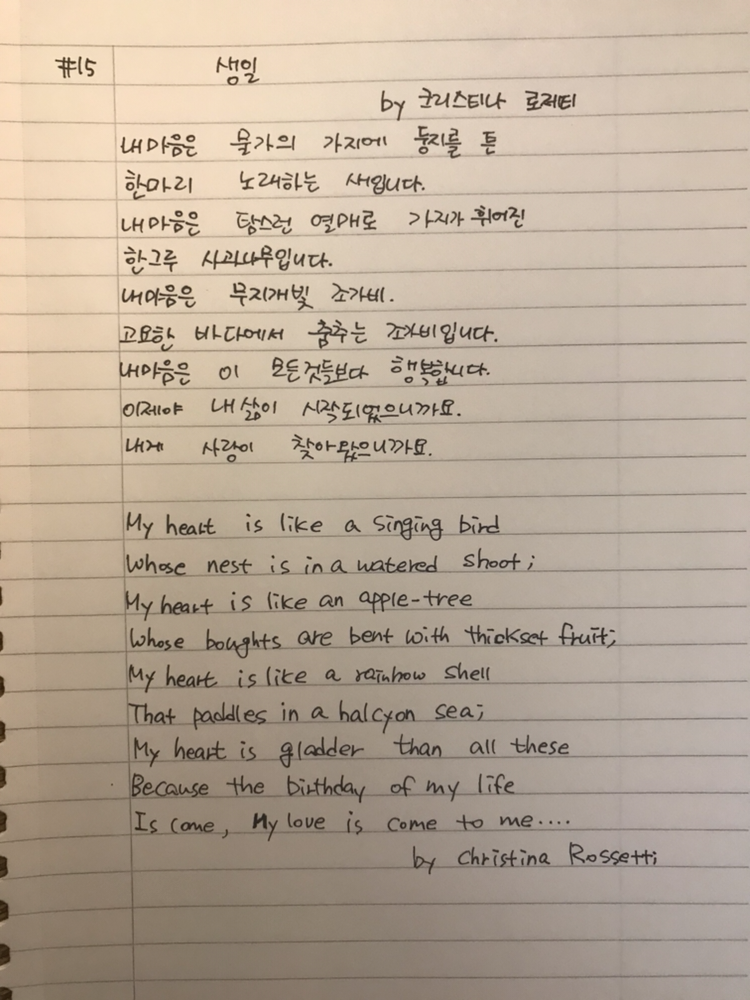 #15 생일
by 크리스티나 로제티
내 마음은 물가의 가지에 둥지를 튼
한마리 노래하는 새입니다.
내 마음은 탐스런 열매로 가지가 휘어진
한그루 사과나무입니다.
내마음은 무지개빛 조가비.
고요한 바다에서 춤추는 조가비입니다.
내마음은 이 모든것들보다 행복합니다.
이제야 내 삶이 시작되었으니까요.
내게 사랑이 찾아왔으니까요.
My heart is like a singing bird
Whose nest is in a watered shoot;
My heart is like an apple-tree
Whose boughts are bent with thickset fruit;
My heart is like a rainbow shell
That paddles in a halcyon sea;
My heart is gladder than all these
Because the birthday of my life
Is come, My love is come to me....
by Christina Rossetti